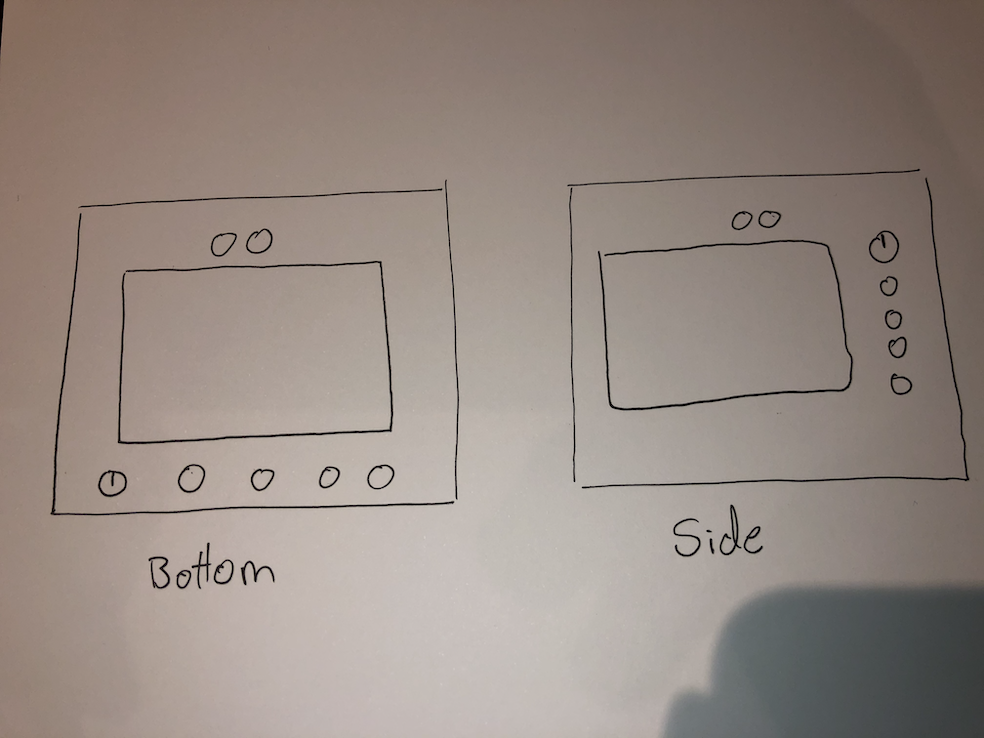 Bottom
Side